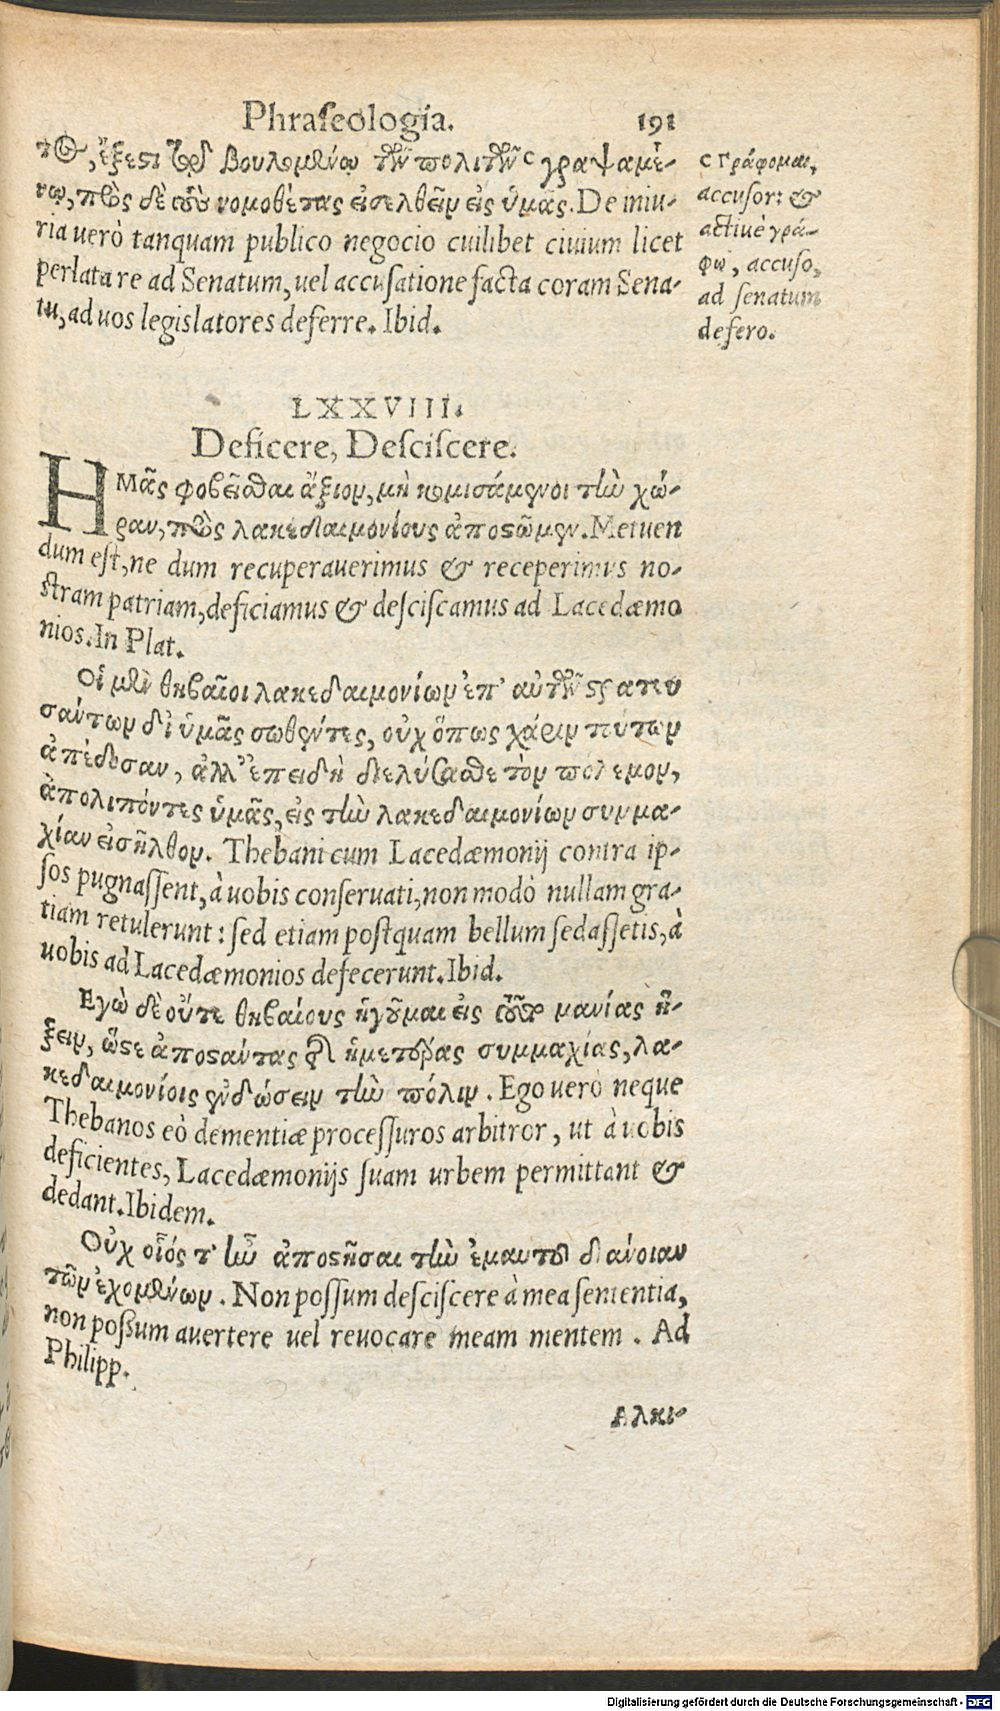 Phraseologia. 191
τος, ἔξεστι τῷ βουλομένῳ τῶν πολιτῶν c γραψαμέ-
νῳ, πρὸς δὲ τοὺς νομοθέτας εἰσελθεῖν εἰς ὑμᾶς. De iniu-
ria uerò tanquam publico negocio cuilibet ciuium licet
perlata re ad Senatum, uel accusatione facta coram Sena-
tu, ad uos legislatores deferre. Ibid.
c Γράφομαι,
accusor: &
actiuè γρά-
φω, accuso,
ad senatum
defero.
LXXVIII.
Deficere, Desciscere.
ΗΜᾶς φοβεῖσθαι ἄξιον, μὴ κομισάμενοι τὴν χώ-
ραν, πρὸς λακεδαιμονίους ἀποστῶμεν. Metuen
dum est, ne dum recuperauerimus & receperimus no-
stram patriam, deficiamus & desciscamus ad Lacedæmo
nios. In Plat.
Οἱ μὲν θηβαῖοι λακεδαιμονίων ἐπ' αὐτοὺς στρατευ
σάντων δι' ὑμᾶς σωθέντες, οὐχ ὅπως χάριν τούτων
ἀπέδοσαν, ἀλλ' ἐπειδὴ διελύσασθε τὸν πόλεμον,
ἀπολιπόντες ὑμᾶς, εἰς τὴν λακεδαιμονίων συμμα-
χίαν εἰσῆλθον. Thebani cum Lacedæmonij contra ip-
sos pugnassent, à uobis conseruati, non modò nullam gra-
tiam retulerunt: sed etiam postquam bellum sedassetis, à
uobis ad Lacedæmonios defecerunt. Ibid.
Εγὼ δὲ οὔτε θηβαίους ἡγοῦμαι εἰς τοῦτο μανίας ἥ-
ξειν, ὥστε ἀποστάντας τῆς ἡμετέρας συμμαχίας, λα-
κεδαιμονίοις ἐνδώσειν τὴν πόλιν. Ego uerò neque
Thebanos eò dementiæ processuros arbitror, ut à uobis
deficientes, Lacedæmonijs suam urbem permittant &
dedant. Ibidem.
Οὐχ οἷός τ' ἦν ἀποστῆσαι τὴν ἐμαυτοῦ διάνοιαν
τῶν ἐχομένων. Non possum desciscere à mea sententia,
non possum auertere uel reuocare meam mentem. Ad
Philipp.
Αλκι-
Digitalisierung gefördert durch die Deutsche Forschungsgemeinschaft - DFG